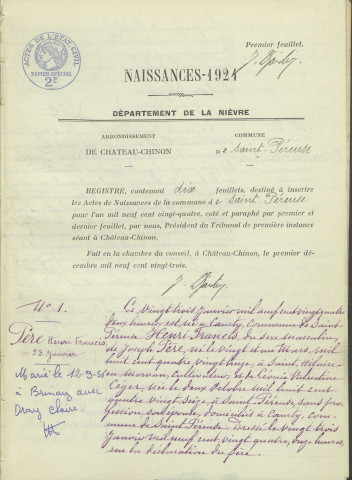 Premier feuillet.
ACTES DE L'ÉTAT CIVIL
PAPIER SPÉCIAL
2F
NAISSANCES-1924
DÉPARTEMENT DE LA NIÈVRE
ARRONDISSEMENT
DE CHATEAU-CHINON
COMMUNE
De Saint-Péreuse
REGISTRE, contenant dix feuillets, destiné à inscrire
les Actes de Naissances de la commune d e Saint-Péreuse
pour l'an mil neuf cent vingt-quatre, coté et paraphé par premier et
dernier feuillet, par nous, Président du Tribunal de première instance
séant à Château-Chinon.
Fait en la chambre du conseil, à Château-Chinon, le premier dé-
cembre mil neuf cent vingt-trois.
N° 1.
Père Henri Francis
23 Janvier
Marié le 12-9-51
à Brinay avec
Dray Claire.
Ce vingt trois Janvier mil neuf cent vingt quatre
deux heures, est né à Commune de Saint-
Péreuse Henri Francis, du sexe masculin,
de Joseph Père, né le vingt et un Mars, mil
huit cent quatre vingt à Saint-Hilaire-
en-Morvan, Cultivateur, et de Léonie Valentine
née le deux Octobre mil huit cent
quatre vingt seize, à Saint-Péreuse, sans pro-
fession, son épouse, domiciliés à com-
mune de Saint-Péreuse. Dressé le vingt trois
Janvier mil neuf cent vingt quatre, onze heures,
sur la déclaration du père.